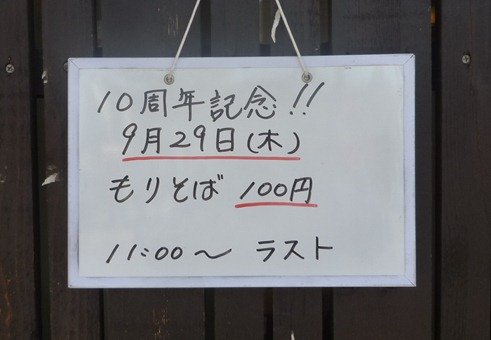 10周年記念!!
9月29日(木)
もりそば 100円
11:00～ ラスト